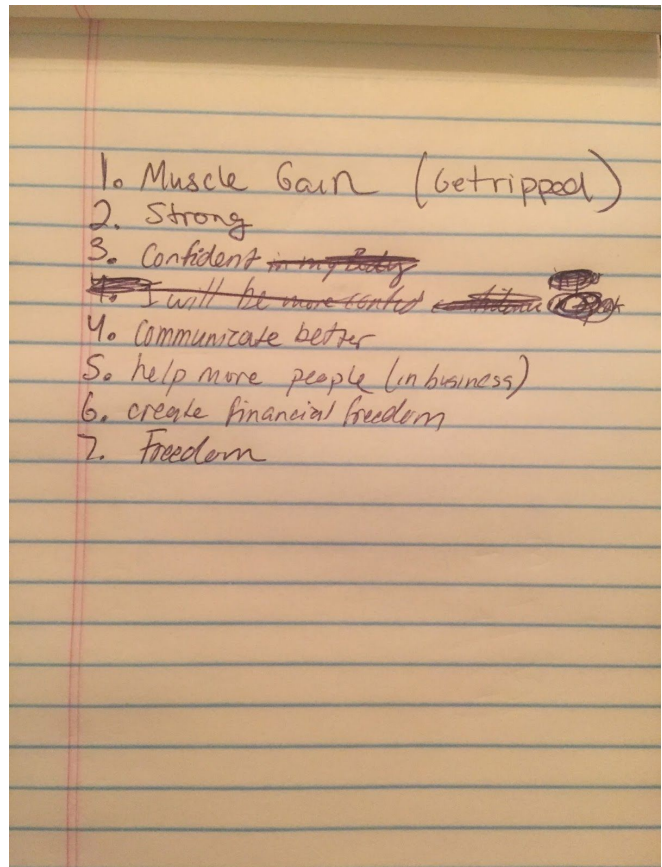 1. Muscle Gain (Get ripped)
2. Strong
3. Confident in my Body
I will be more
4. Communicate better
5. help more people (in business)
6. create financial freedom
7. Freedom